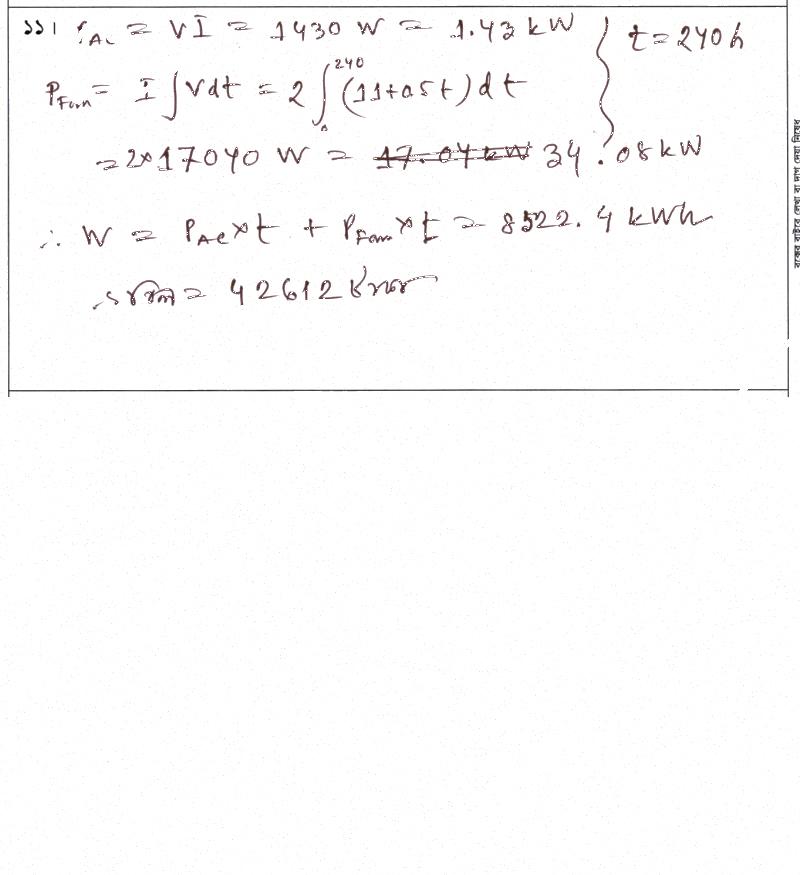 ১১। P_AC = VI = 1430 W = 1.43 kW } t = 240 h
P_Fan = I ∫ V dt = 2 ∫_0^240 (11 + 0.5t) dt
= 2 × 17040 W = 34.08 kW
∴ W = P_AC × t + P_Fan × t = 8522.4 kWh
∴ বিল = 42612 টাকা
রঙের বাইরে লেখা বা দাগ দেয়া নিষেধ